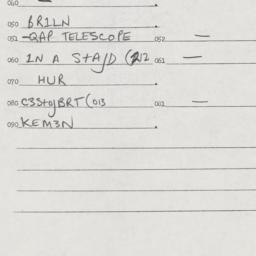 040
050 BRILN
051 -QAP TELESCOPE 052 —
060 IN A STAJD (212 061 —
070 HUR
080 C3StojBRT(013 002 —
090 KEM3N